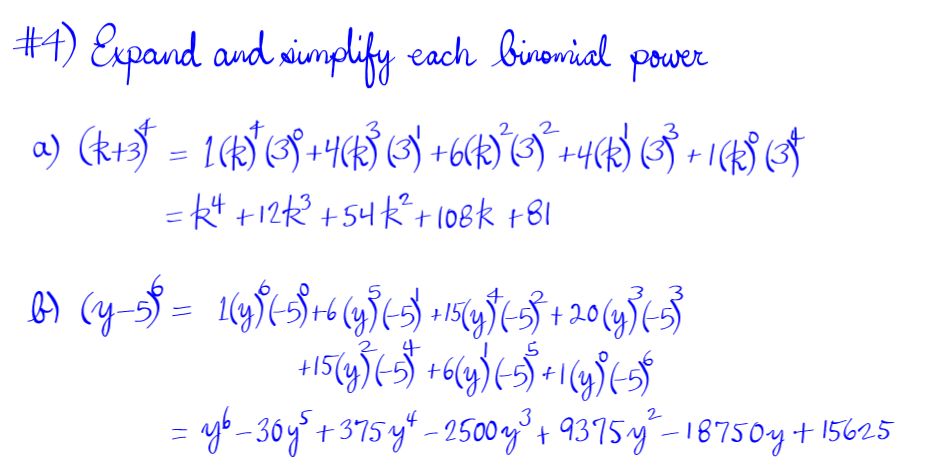 #4) Expand and simplify each binomial power
a) (k+3)⁴ = 1(k)⁴(3)⁰+4(k)³(3)¹+6(k)²(3)²+4(k)¹(3)³+1(k)⁰(3)⁴
=k⁴+12k³+54k²+108k+81
b) (y-5)⁶ = 1(y)⁶(-5)⁰+6(y)⁵(-5)¹+15(y)⁴(-5)²+20(y)³(-5)³
+15(y)²(-5)⁴+6(y)¹(-5)⁵+1(y)⁰(-5)⁶
= y⁶-30y⁵+375y⁴-2500y³+9375y²-18750y+15625